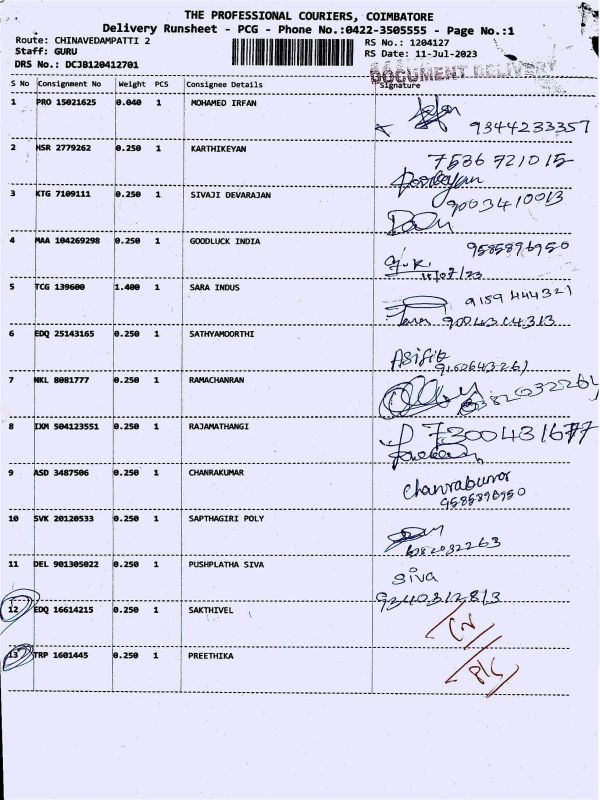 THE PROFESSIONAL COURIERS, COIMBATORE
Delivery Runsheet - PCG - Phone No.:0422-3505555 - Page No.:1
Route: CHINAVEDAMPATTI 2 RS No.: 1204127
Staff: GURU RS Date: 11-Jul-2023
DRS No.: DCJB120412701
DOCUMENT DELIVERY
S No Consignment No Weight PCS Consignee Details Signature
1 PRO 15021625 0.040 1 MOHAMED IRFAN
9344233357
2 HSR 2779262 0.250 1 KARTHIKEYAN
7586921015
3 KTG 7109111 0.250 1 SIVAJI DEVARAJAN 9003410013
4 MAA 104269298 0.250 1 GOODLUCK INDIA 9585896950
G.K.
5 TCG 139600 1.400 1 SARA INDUS 9159444321
6 EDQ 25143165 0.250 1 SATHYAMOORTHI
7 NKL 8081777 0.250 1 RAMACHANRAN
8 IXM 504123551 0.250 1 RAJAMATHANGI 7300431677
9 ASD 3487506 0.250 1 CHANRAKUMAR
Chanrakumar
9585896950
10 SVK 20120533 0.250 1 SAPTHAGIRI POLY
11 DEL 901305022 0.250 1 PUSHPLATHA SIVA
Siva
9340312813
12 EDQ 16614215 0.250 1 SAKTHIVEL
13 TRP 1601445 0.250 1 PREETHIKA